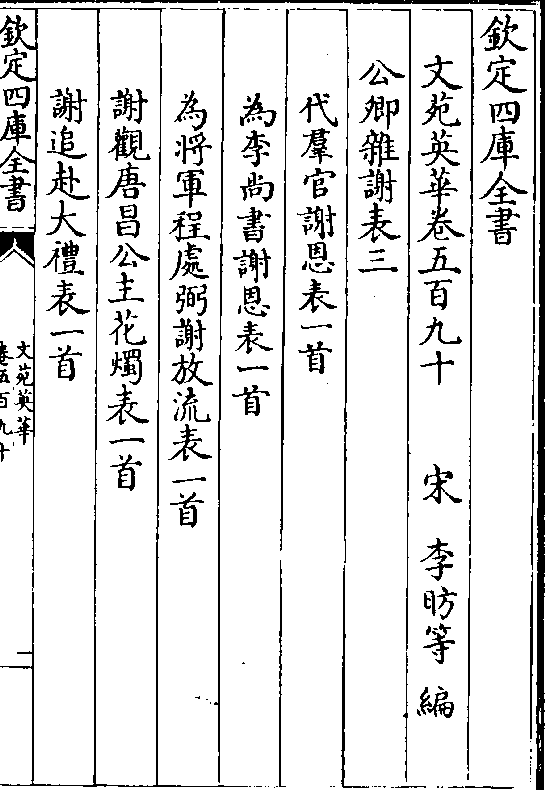 欽定四庫全書
文苑英華卷五百九十　宋　李昉等　編
公卿雜謝表三
代羣官謝恩表一首
為李尚書謝恩表一首
為將軍程處弼謝放流表一首
謝觀唐昌公主花燭表一首
謝追赴大禮表一首
欽定四庫全書
文苑英華
卷五百九十
二